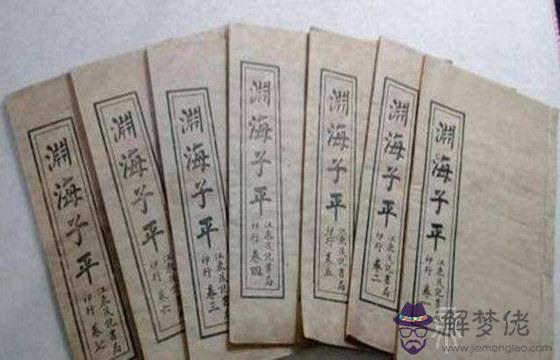 淵海子平
江東茂記書局
印行 卷七
淵海子平
江東茂記書局
印行 卷六
淵海子平
江東茂記書局
印行 卷三
淵海子平
江東茂記書局
印行 卷四
淵海子平
江東茂記書局
印行 卷五
淵海子平
江東茂記書局
印行 卷二
淵海子平
江東茂記書局
印行 卷一
解梦佬
www.jiemenglao.com